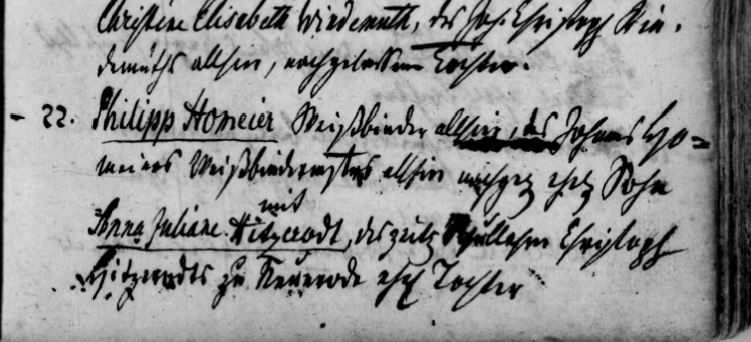 Christine Elisabeth Windemuth, des Joh. Christoph Win-
demuths allhier, nachgelassene Tochter.
- 22. Philipp Homeier Weißbinder allhier, des Johannes Ho=
meiers Weißbindermstrs allhier nachgel. ehel. Sohn
mit
Anna Juliane Hitzerodt, des zeitl. Schullehrers Christoph
Hitzerodts zu Neuerode ehel. Tochter